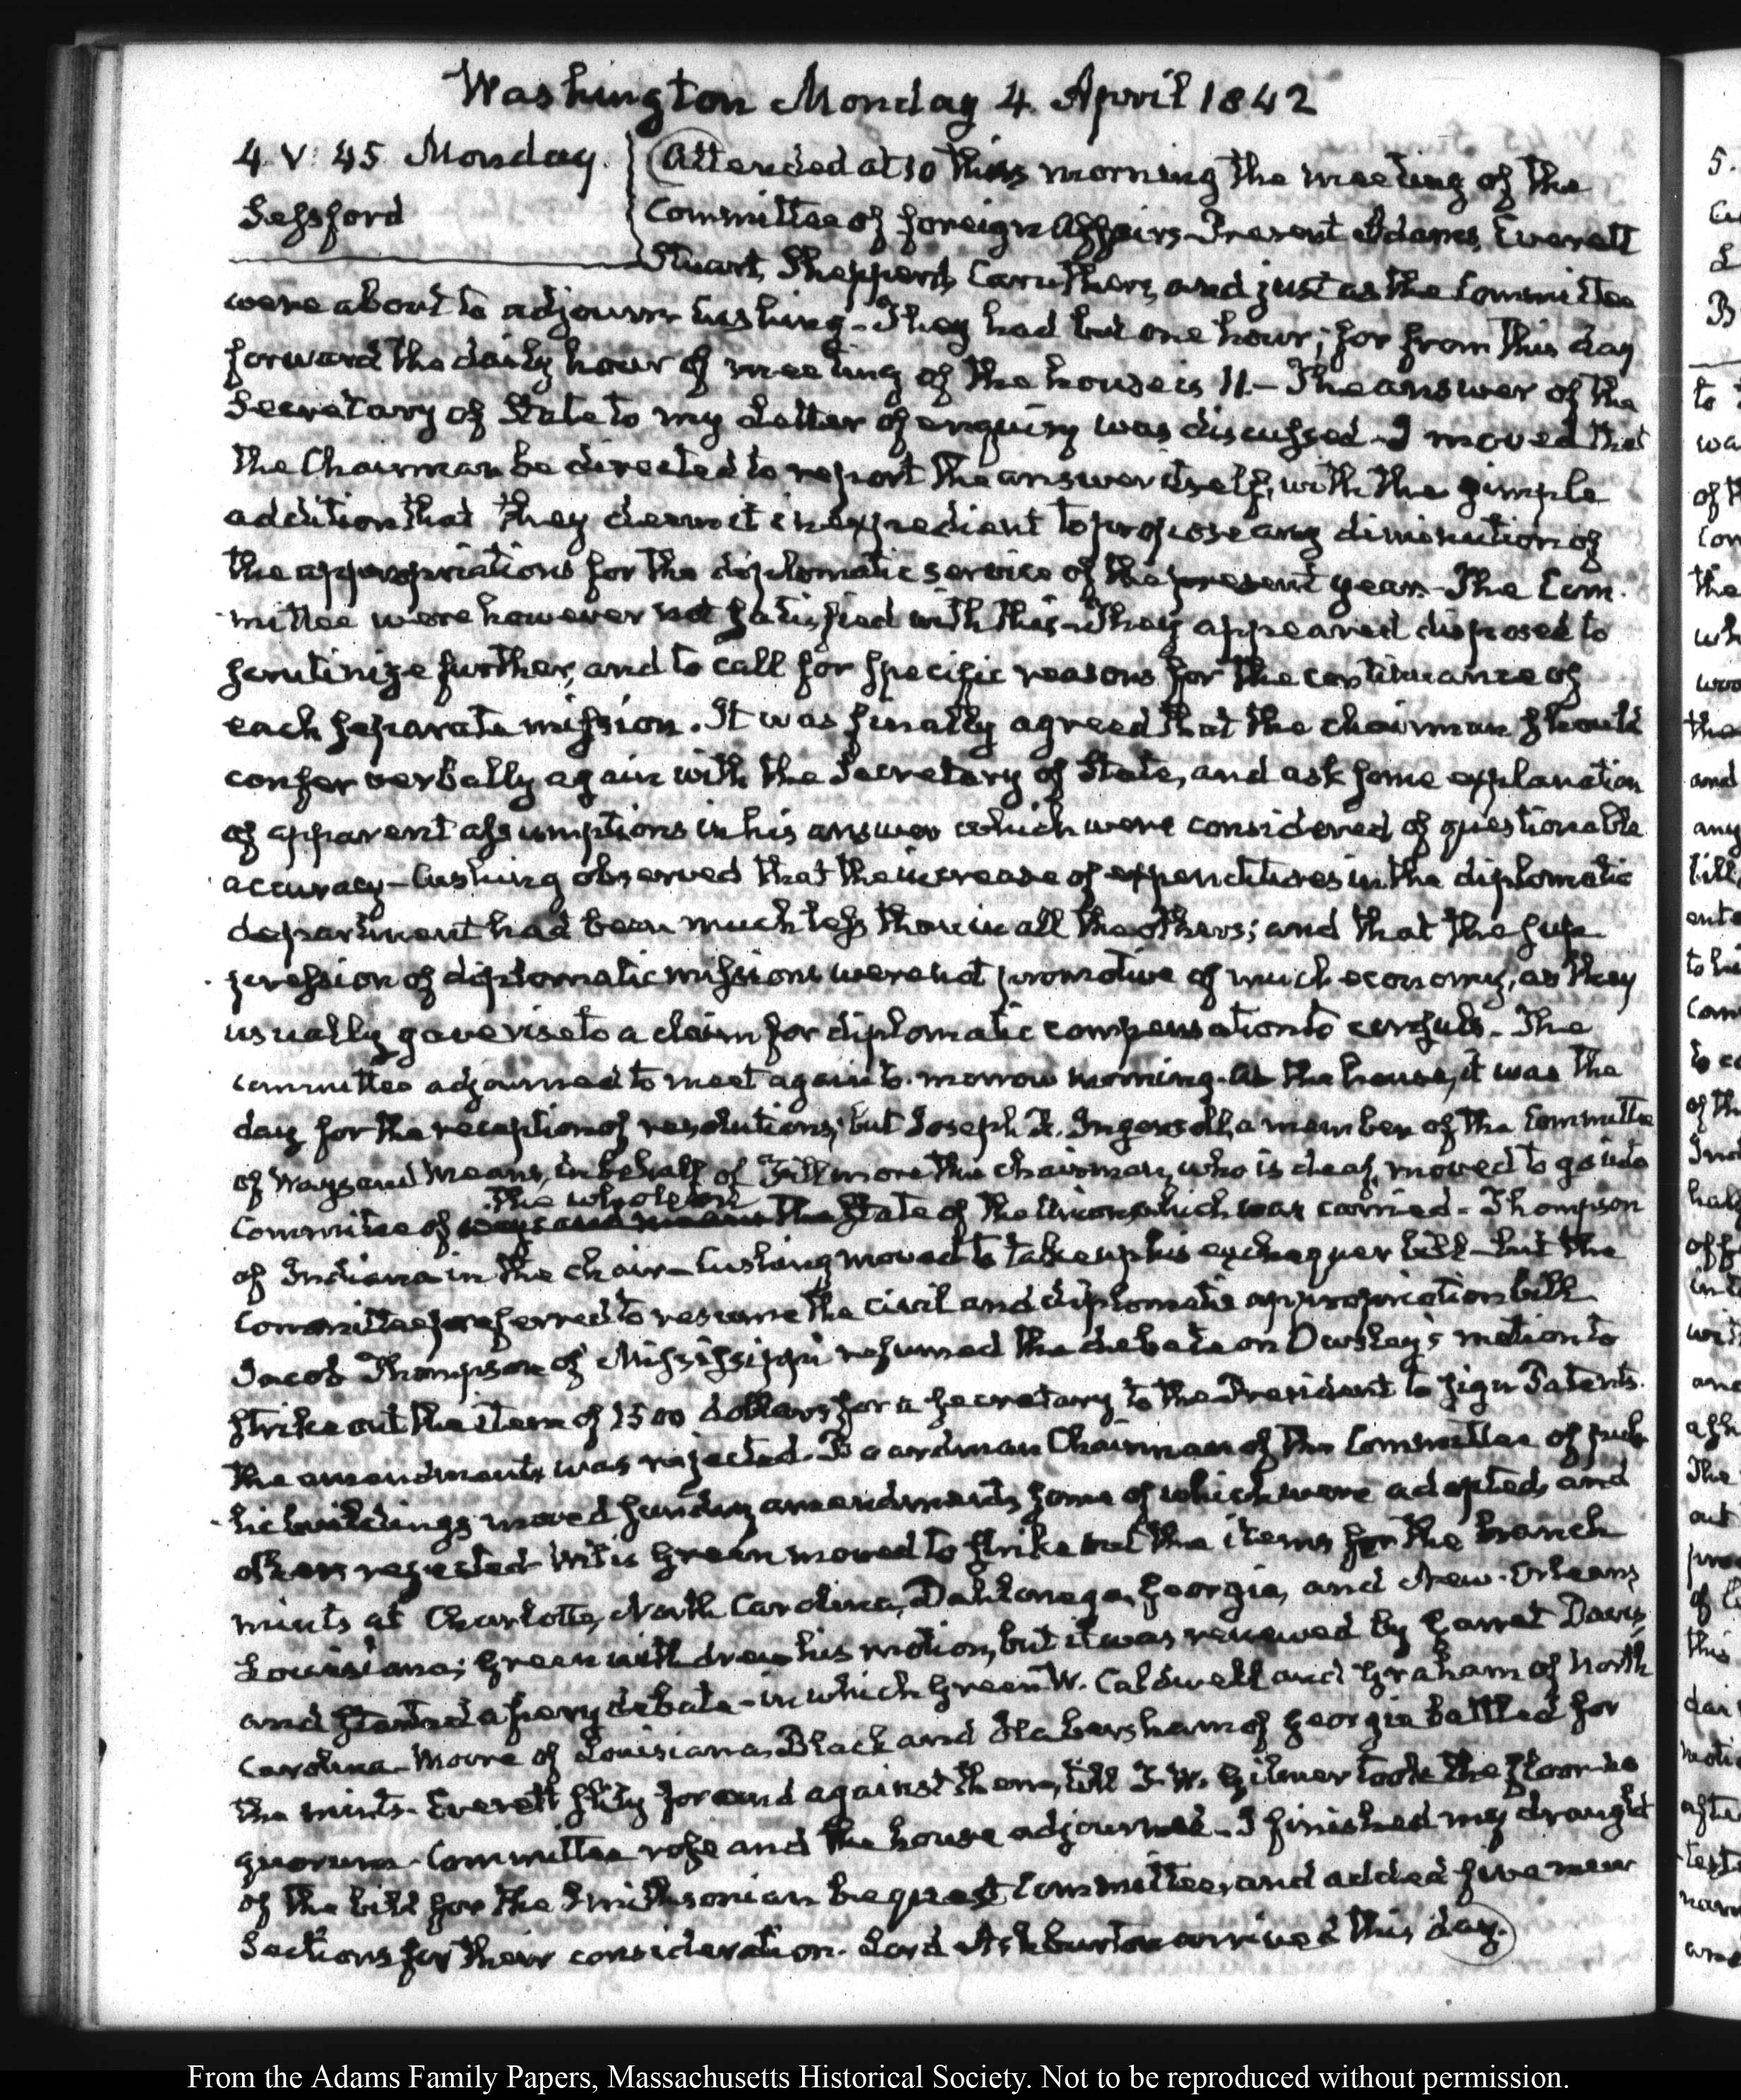 Washington Monday 4. April 1842
4. V: 45. Monday.
Sessford
Attended at 10 this morning the meeting of the
Committee of foreign Affairs. Present Adams, Everett
Stuart, Shepperd, Caruthers, and just as the Committee
were about to adjourn Cushing - They had but one hour; for from this day
forward the daily hour of meeting of the house is 11. - The answer of the
Secretary of State to my Letter of enquiry was discussed - I moved that
the Chairman be directed to report the answer itself, with the simple
addition that they deem it inexpedient to propose any diminution of
the appropriations for the diplomatic service of the present year - The Com-
mittee were however not satisfied with this - They appeared disposed to
scrutinize further, and to call for specific reasons for the continuance of
each separate mission. It was finally agreed that the chairman should
confer verbally again with the Secretary of State, and ask some explanation
of apparent assumptions in his answer which were considered of questionable
accuracy - Cushing observed that the increase of expenditures in the diplomatic
department had been much less than in all the others; and that the sup-
pression of diplomatic missions were not promotive of much economy, as they
usually gave rise to a claim for diplomatic compensation to consuls. The
committee adjourned to meet again to-morrow morning. At the house, it was the
day for the reception of resolutions; but Joseph R. Ingersoll, a member of the Committee
of Ways and Means, in behalf of Fillmore the chairman, who is deaf, moved to go into
the whole on
Committee of ways and means the State of the Union, which was carried - Thompson
of Indiana in the chair - Cushing moved to take up his exchequer bill - but the
Committee preferred to resume the civil and diplomatic appropriation bill
Jacob Thompson of Mississippi resumed the debate on Owsley's motion to
strike out the item of 1500 dollars for a secretary to the President to sign Patents.
the amendment was rejected. Boardman Chairman of the Committee of pub-
lic buildings moved sundry amendments, some of which were adopted, and
others rejected. Willis Green moved to strike out the items for the branch
mints at Charlotte, North Carolina, Dahlonega, Georgia, and New-Orleans,
Louisiana; Green withdrew his motion, but it was renewed by Garret Davis,
and started a fiery debate - in which Green W. Caldwell and Graham of North
Carolina - Moore of Louisiana, Black and Habersham of Georgia battled for
the mints. Everett for and against them, till T. W. Gilmer took the floor - no
quorum. Committee rose and the house adjourned - I finished my draught
of the bill for the Smithsonian bequest Committee, and added five new
Sections for their consideration. Lord Ashburton arrived this day.
5.
From the Adams Family Papers, Massachusetts Historical Society. Not to be reproduced without permission.